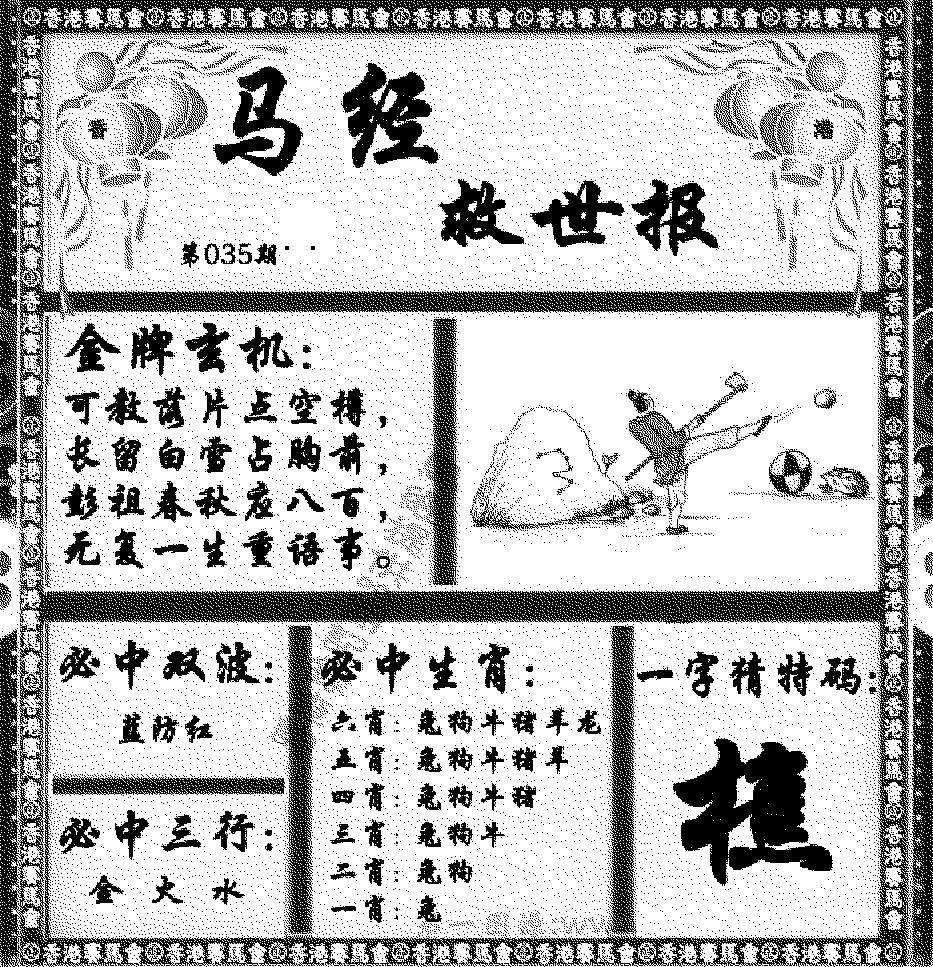 香港賽馬會 香港賽馬會 香港賽馬會 香港賽馬會 香港賽馬會 香港賽馬會 香港賽馬會
香
港
马经
救世报
第035期
金牌玄机:
可教落片点空樽,
长留白雪占胸前,
彭祖春秋应八百,
无复一生重语事。
必中双波:
蓝防红
必中三行:
金火水
必中生肖:
六肖:兔狗牛猪羊龙
五肖:兔狗牛猪羊
四肖:兔狗牛猪
三肖:兔狗牛
二肖:兔狗
一肖:兔
一字猜特码:
香港賽馬會 香港賽馬會 香港賽馬會 香港賽馬會 香港賽馬會 香港賽馬會 香港賽馬會